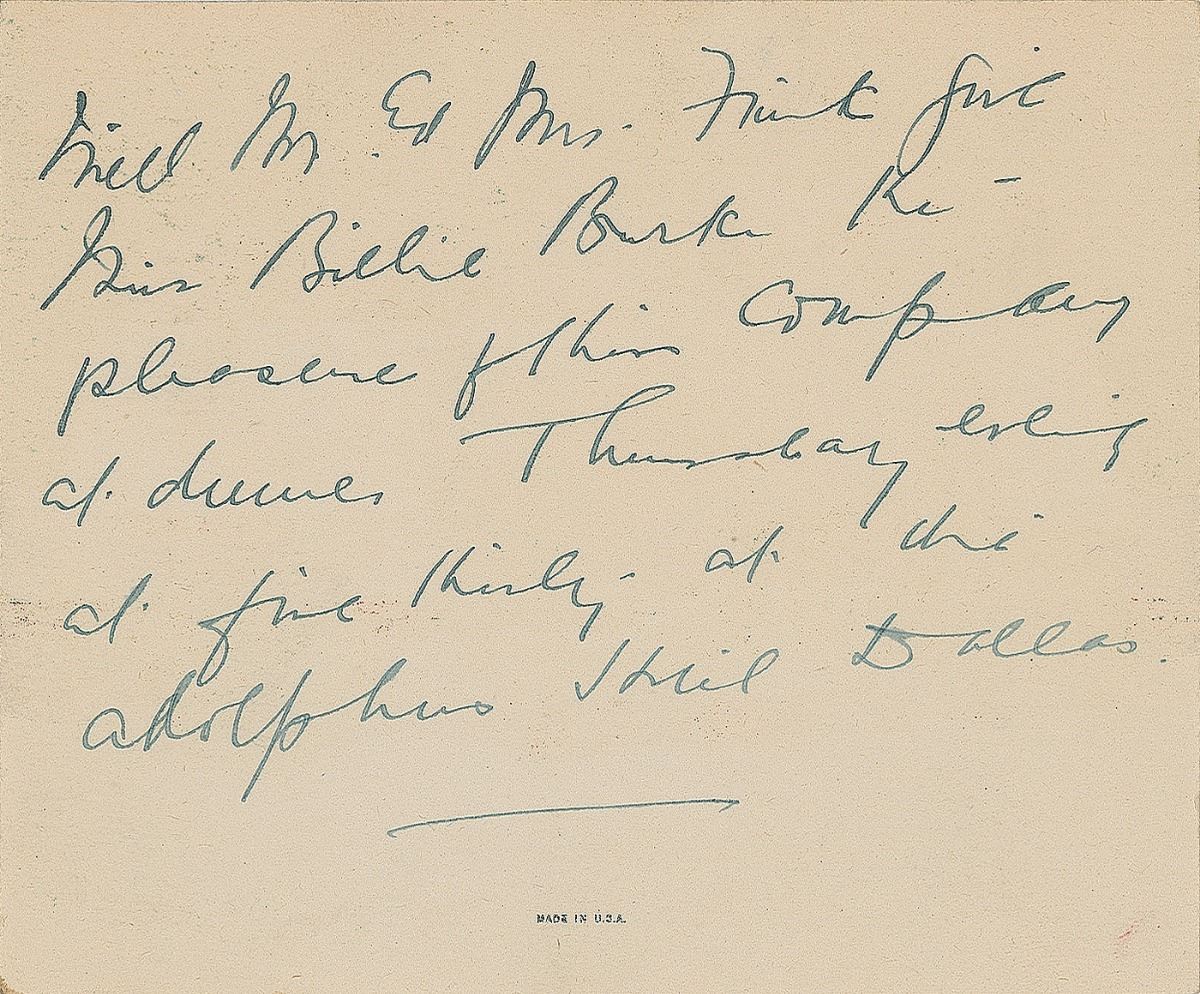 Will Mr. Ed Mrs. Fink give
Miss Billie Burke the
pleasure of their company
at dinner Thursday evening
at five thirty at the
Adolphus Hotel Dallas.
MADE IN U.S.A.